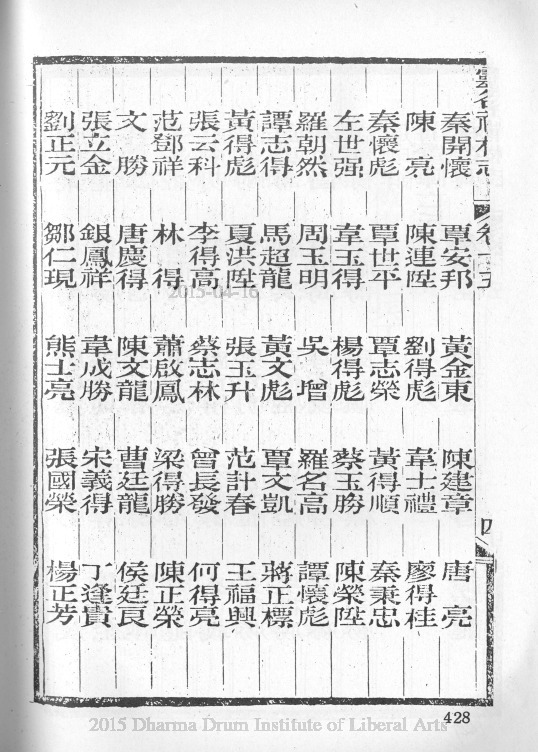 秦開懷 覃安邦 黃金東 陳建章 唐亮
陳亮 陳連陞 劉得彪 韋士禮 廖得桂
秦懷彪 覃世平 覃志榮 黃得順 秦秉忠
左世强 韋玉得 楊得彪 蔡玉勝 陳榮陞
羅朝然 周玉明 吳增 羅名高 譚懷彪
譚志得 馬超龍 黃文彪 覃文凱 蔣正標
黃得彪 夏洪陞 張玉升 范計春 王福興
張云科 李得高 蔡志林 曾長發 何得亮
范鄧祥 林得 蕭啟鳳 梁得勝 陳正榮
文勝 唐慶得 陳文龍 曹廷龍 侯廷良
張立金 銀鳳祥 韋成勝 宋義得 丁逢貴
劉正元 鄒仁現 熊士亮 張國榮 楊正芳
四
2015-04-16
428
2015 Dharma Drum Institute of Liberal Arts